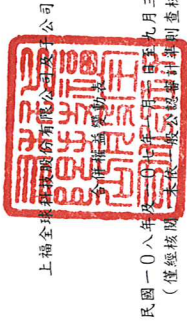 上福全球科技股份有限公司及子公司
合併權益變動表
民國一〇八年及一〇七年一月一日至九月三
（僅經核閱，未依一般公認審計準則查核